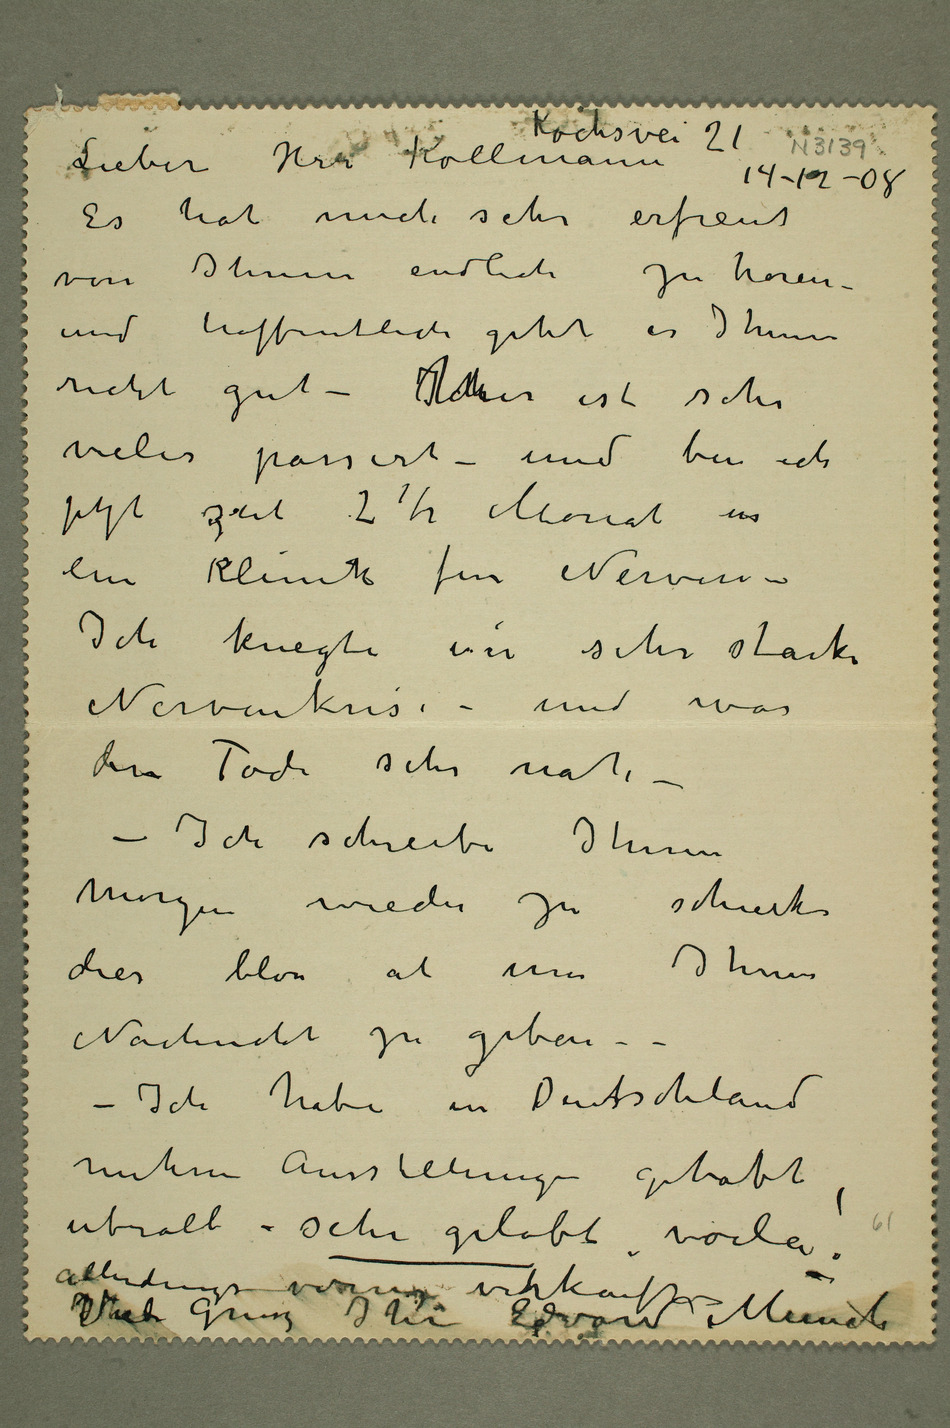 Kochsvei 21
N3139
Lieber Herr Kollmann
14-12-08
Es hat mich sehr erfreut
von Ihnen endlich zu horen –
und hoffentlich geht es Ihnen
recht gut – Hier ist sehr
vieles passiert – und bin ich
jetzt zeit 2 1/2 Monat in
ein Klinik für Nerven –
Ich kriegte ein sehr starke
Nervenkrise – und war
den Tode sehr nah –
– Ich schreibe Ihnen
morgen wieder zu
dies blos at um Ihnen
Nachricht zu geben – –
– Ich habe in Deutschland
mehre Ausstellunge gehabt,
uberall – sehr gelobt, voila!
61
allerdings wenig verkauft –
Gruss Ihr Edvard Munch